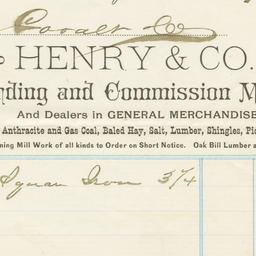 HENRY & CO.
ding and Commission M
And Dealers in GENERAL MERCHANDISE
Anthracite and Gas Coal, Baled Hay, Salt, Lumber, Shingles, Pic
ning Mill Work of all kinds to Order on Short Notice. Oak Bill Lumber a
Square Iron 3/4